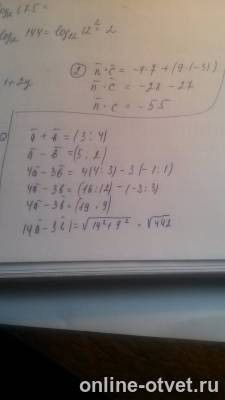 log₁₂ 144 = log₁₂ 12² = 2
② n̄ · c̄ = -4·7 + (9·(-3))
n̄ · c̄ = -28 - 27
n̄ · c = -55
ā + b̄ = (3 ; 4)
ā - b̄ = (5 ; 2)
4ā - 3b̄ = 4(4 ; 3) - 3(-1 ; 1)
4ā - 3b̄ = (16 ; 12) - (-3 ; 3)
4ā - 3b̄ = (19 ; 9)
|4ā - 3b̄| = √19² + 9² = √442
online-otvet.ru